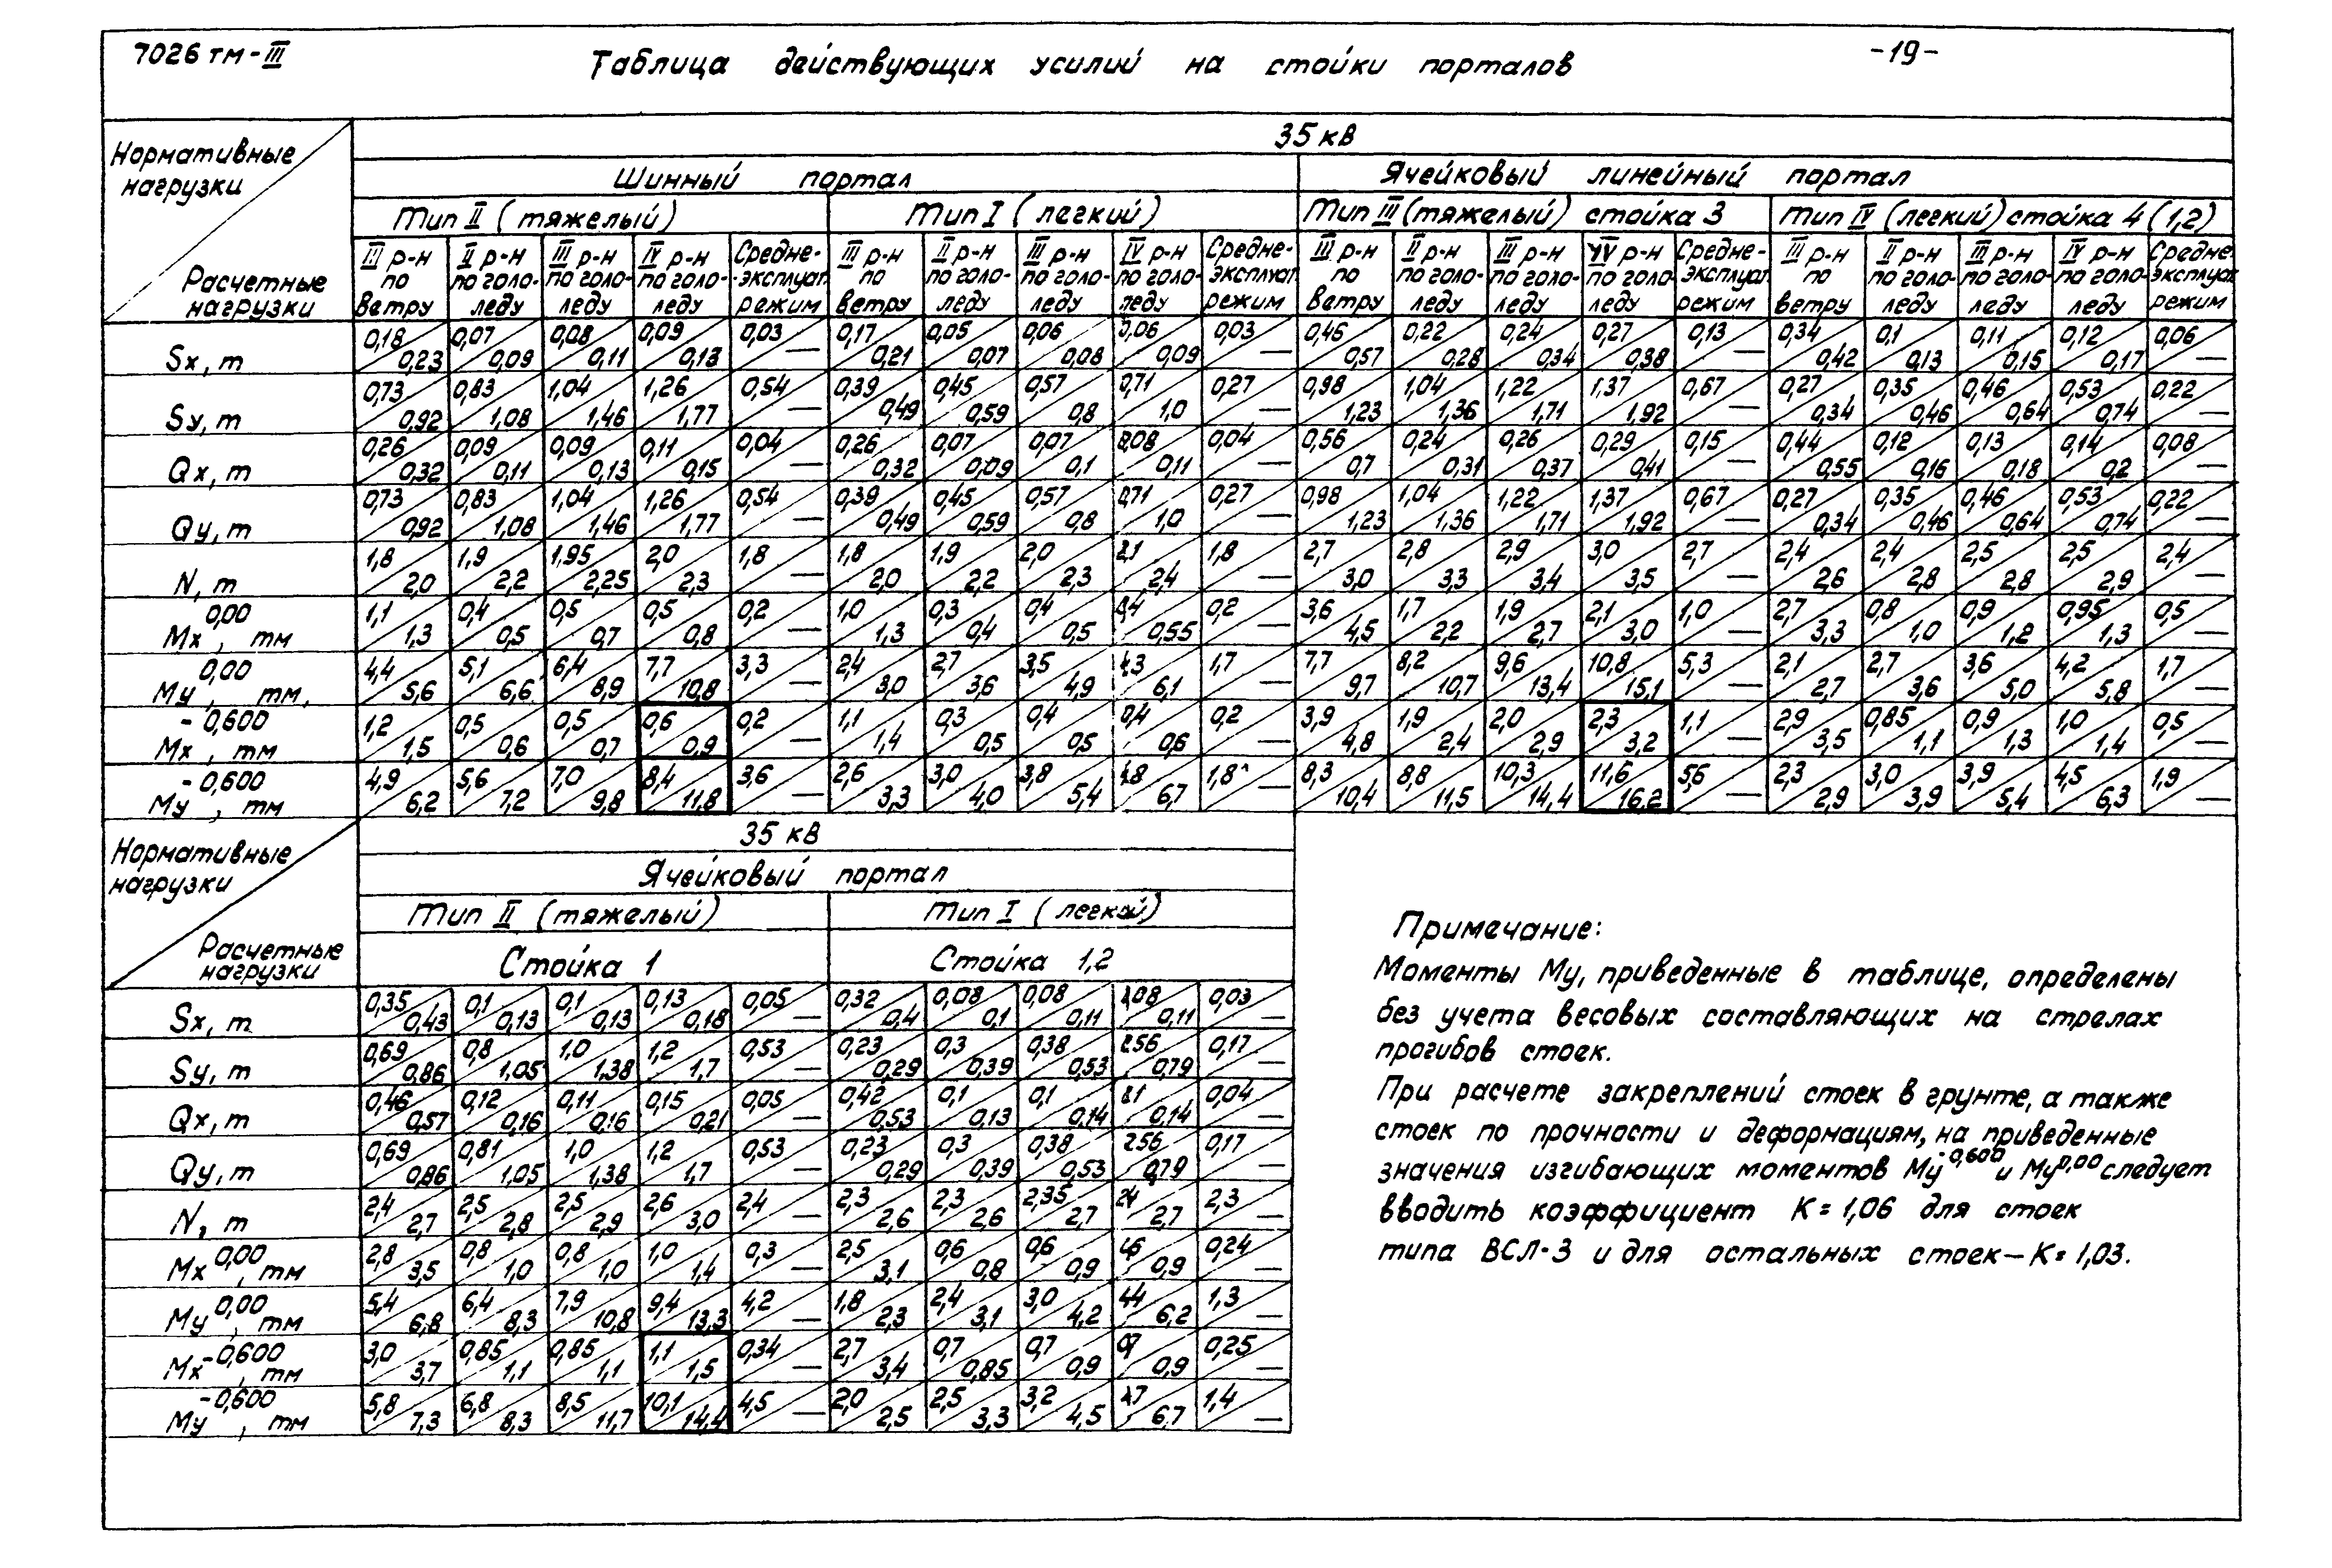 7026 тм-III
Таблица действующих усилий на стойки порталов
-19-
Нормативные нагрузки
Расчетные нагрузки
35 кв
Шинный портал
Ячейковый линейный портал
Тип II (тяжелый)
Тип I (легкий)
Тип III (тяжелый) стойка 3
Тип IV (легкий) стойка 4 (1,2)
III р-н по ветру II р-н по гололеду III р-н по гололеду IV р-н по гололеду Средне-эксплуат. режим III р-н по ветру II р-н по гололеду III р-н по гололеду IV р-н по гололеду Средне-эксплуат режим III р-н по ветру II р-н по гололеду III р-н по гололеду IV р-н по гололеду Средне-эксплуат. режим III р-н по ветру II р-н по гололеду III р-н по гололеду IV р-н по гололеду Средне-эксплуат режим
Sx, т 0,18/0,23 0,07/0,09 0,08/0,11 0,09/0,13 0,03/— 0,17/0,21 0,05/0,07 0,06/0,08 0,06/0,09 0,03/— 0,46/0,57 0,22/0,28 0,24/0,34 0,27/0,38 0,13/— 0,34/0,42 0,1/0,13 0,11/0,15 0,12/0,17 0,06/—
Sy, т 0,73/0,92 0,83/1,08 1,04/1,46 1,26/1,77 0,54/— 0,39/0,49 0,45/0,59 0,57/0,8 0,71/1,0 0,27/— 0,98/1,23 1,04/1,36 1,22/1,71 1,37/1,92 0,67/— 0,27/0,34 0,35/0,46 0,46/0,64 0,53/0,74 0,22/—
Qx, т 0,26/0,32 0,09/0,11 0,09/0,13 0,11/0,15 0,04/— 0,26/0,32 0,07/0,09 0,07/0,1 0,08/0,11 0,04/— 0,56/0,7 0,24/0,31 0,26/0,37 0,29/0,41 0,15/— 0,44/0,55 0,12/0,16 0,13/0,18 0,14/0,2 0,08/—
Qy, т 0,73/0,92 0,83/1,08 1,04/1,46 1,26/1,77 0,54/— 0,39/0,49 0,45/0,59 0,57/0,8 0,71/1,0 0,27/— 0,98/1,23 1,04/1,36 1,22/1,71 1,37/1,92 0,67/— 0,27/0,34 0,35/0,46 0,46/0,64 0,53/0,74 0,22/—
N, т 1,8/2,0 1,9/2,2 1,95/2,25 2,0/2,3 1,8/— 1,8/2,0 1,9/2,2 2,0/2,3 2,1/2,4 1,8/— 2,7/3,0 2,8/3,3 2,9/3,4 3,0/3,5 2,7/— 2,4/2,6 2,4/2,8 2,5/2,8 2,5/2,9 2,4/—
Mx 0,00, тм 1,1/1,3 0,4/0,5 0,5/0,7 0,5/0,8 0,2/— 1,0/1,3 0,3/0,4 0,4/0,5 0,4/0,55 0,2/— 3,6/4,5 1,7/2,2 1,9/2,7 2,1/3,0 1,0/— 2,7/3,3 0,8/1,0 0,9/1,2 0,95/1,3 0,5/—
My 0,00, тм, 4,4/5,6 5,1/6,6 6,4/8,9 7,7/10,8 3,3/— 2,4/3,0 2,7/3,6 3,5/4,9 4,3/6,1 1,7/— 7,7/9,7 8,2/10,7 9,6/13,4 10,8/15,1 5,3/— 2,1/2,7 2,7/3,6 3,6/5,0 4,2/5,8 1,7/—
Mx -0,600, тм 1,2/1,5 0,5/0,6 0,5/0,7 0,6/0,9 0,2/— 1,1/1,4 0,3/0,5 0,4/0,5 0,4/0,6 0,2/— 3,9/4,8 1,9/2,4 2,0/2,9 2,3/3,2 1,1/— 2,9/3,5 0,85/1,1 0,9/1,3 1,0/1,4 0,5/—
My -0,600, тм 4,9/6,2 5,6/7,2 7,0/9,8 8,4/11,8 3,6/— 2,6/3,3 3,0/4,0 3,8/5,4 4,8/6,7 1,8/— 8,3/10,4 8,8/11,5 10,3/14,4 11,6/16,2 5,6/— 2,3/2,9 3,0/3,9 3,9/5,4 4,5/6,3 1,9/—
Нормативные нагрузки
Расчетные нагрузки
35 кв
Ячейковый портал
Тип II (тяжелый)
Тип I (легкий)
Стойка 1
Стойка 1,2
Sx, т 0,35/0,43 0,1/0,13 0,1/0,13 0,13/0,18 0,05/— 0,32/0,4 0,08/0,1 0,08/0,11 0,08/0,11 0,03/—
Sy, т 0,69/0,86 0,8/1,05 1,0/1,38 1,2/1,7 0,53/— 0,23/0,29 0,3/0,39 0,38/0,53 0,56/0,79 0,17/—
Qx, т 0,46/0,57 0,12/0,16 0,11/0,16 0,15/0,21 0,05/— 0,42/0,53 0,1/0,13 0,1/0,14 0,1/0,14 0,04/—
Qy, т 0,69/0,86 0,81/1,05 1,0/1,38 1,2/1,7 0,53/— 0,23/0,29 0,3/0,39 0,38/0,53 0,56/0,79 0,17/—
N, т 2,4/2,7 2,5/2,8 2,5/2,9 2,6/3,0 2,4/— 2,3/2,6 2,3/2,6 2,35/2,7 2,4/2,7 2,3/—
Mx 0,00, тм 2,8/3,5 0,8/1,0 0,8/1,0 1,0/1,4 0,3/— 2,5/3,1 0,6/0,8 0,6/0,9 /0,9 0,24/—
My 0,00, тм 5,4/6,8 6,4/8,3 7,9/10,8 9,4/13,3 4,2/— 1,8/2,3 2,4/3,1 3,0/4,2 4,4/6,2 1,3/—
Mx -0,600, тм 3,0/3,7 0,85/1,1 0,85/1,1 1,1/1,5 0,34/— 2,7/3,4 0,7/0,85 0,7/0,9 0,7/0,9 0,25/—
My -0,600, тм 5,8/7,3 6,8/8,3 8,5/11,7 10,1/14,4 4,5/— 2,0/2,5 2,5/3,3 3,2/4,5 4,7/6,7 1,4/—
Примечание:
Моменты My, приведенные в таблице, определены
без учета весовых составляющих на стрелах
прогибов стоек.
При расчете закреплений стоек в грунте, а также
стоек по прочности и деформациям, на приведенные
значения изгибающих моментов My-0,600 и My0,00 следует
вводить коэффициент К=1,06 для стоек
типа ВСЛ-3 и для остальных стоек—К=1,03.